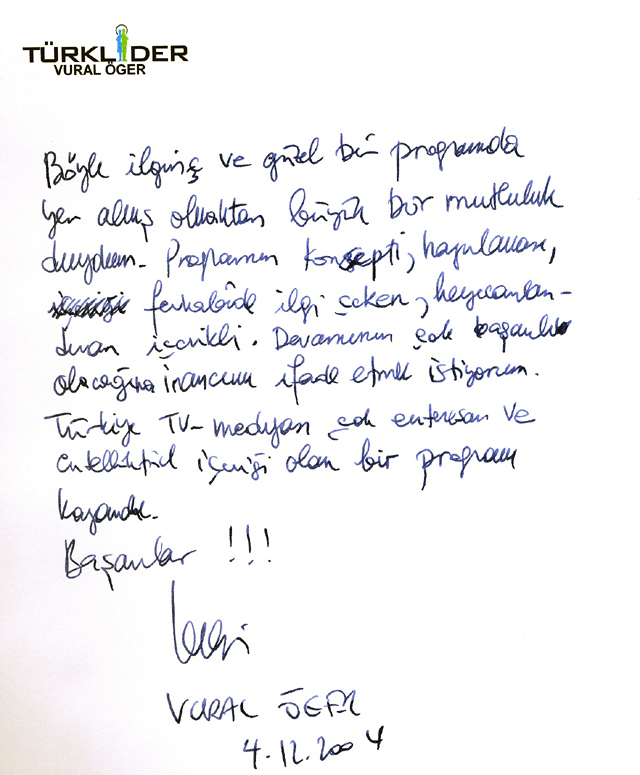 TÜRKLİDER
VURAL ÖGER
Böyle ilginç ve güzel bir programda
yer almış olmaktan büyük bir mutluluk
duydum. Programın konsepti, hazırlanması,
fevkalade ilgi çeken, heyecanlan-
dıran içerikli. Devamının çok başarılı
olacağına inancımı ifade etmek istiyorum.
Türkiye TV-medyası çok enteresan ve
entellektüel içeriği olan bir program
kazandı.
Başarılar !!!
VURAL ÖGER
4.12.2004